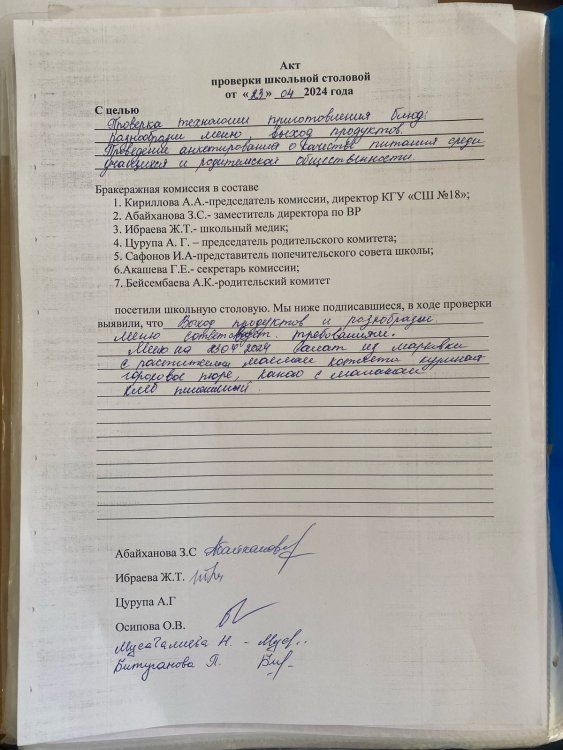 Акт
проверки школьной столовой
от «23» 04 2024 года
С целью
Проверка технологии приготовления блюд;
разнообразии меню, выход продуктов.
Проведение анкетирования о качестве питания среди
учащихся и родительской общественности.
Бракеражная комиссия в составе
1. Кириллова А.А.-председатель комиссии, директор КГУ «СШ №18»;
2. Абайханова З.С.- заместитель директора по ВР
3. Ибраева Ж.Т.- школьный медик;
4. Цурупа А. Г. – председатель родительского комитета;
5. Сафонов И.А-представитель попечительского совета школы;
6.Акашева Г.Е.- секретарь комиссии;
7. Бейсембаева А.К.-родительский комитет
посетили школьную столовую. Мы ниже подписавшиеся, в ходе проверки
выявили, что Выход продуктов и разнобразие.
Меню соответствует. требованиям.
Меню на 23.04.2024 Салат из моркови
с растительным маслом котлета куриная
гороховое пюре, какао с молоком
хлеб пшеничный.
Абайханова З.С
Ибраева Ж.Т.
Цурупа А.Г
Осипова О.В.
Мусагалиева Н. -
Битуганова П.